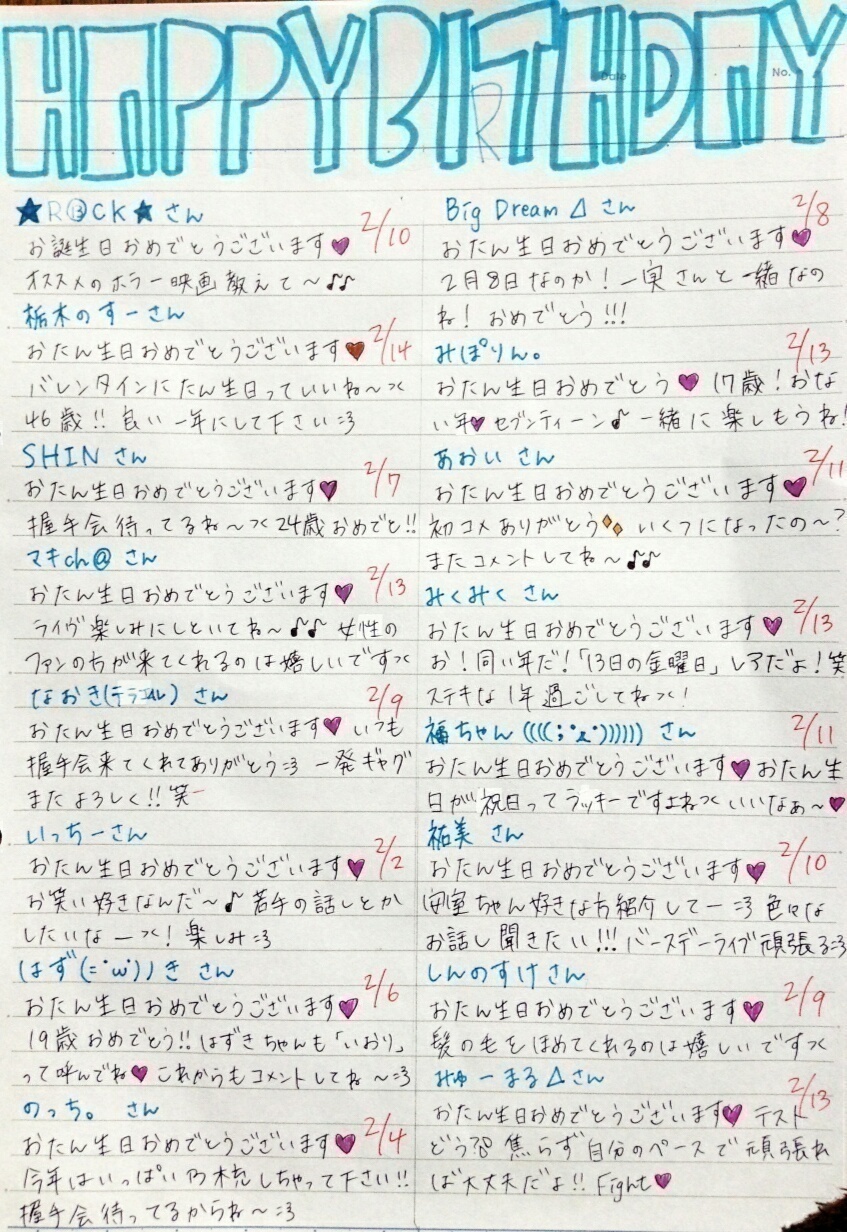 HAPPY BIRTHDAY
Date
No.
★R®CK★さん 2/10
お誕生日おめでとうございます♥
オススメのホラー映画教えて〜♪♪
栃木のすーさん 2/14
おたん生日おめでとうございます♥
バレンタインにたん生日っていいね〜つく
46歳!!良い一年にして下さい:3
SHINさん 2/7
おたん生日おめでとうございます♥
握手会待ってるね〜つく24歳おめでと!!
マキch@さん 2/13
おたん生日おめでとうございます♥
ライヴ楽しみにしといてね〜♪♪女性の
ファンの方が来てくれるのは嬉しいですつく
なおき(テラエル)さん 2/9
おたん生日おめでとうございます♥いつも
握手会来てくれてありがとう:3 一発ギャグ
またよろしく!!笑
いっちーさん 2/2
おたん生日おめでとうございます♥
お笑い好きなんだ〜♪若手の話しとか
したいなーつく!楽しみ:3
はず(=´ω`)ノきさん 2/6
おたん生日おめでとうございます♥
19歳おめでとう!!はずきちゃんも「いおり」
って呼んでね♥これからもコメントしてね〜:3
のっち。さん 2/4
おたん生日おめでとうございます♥
今年はいっぱい乃木充しちゃって下さい!!
握手会待ってるからね〜:3
Big Dream△さん 2/8
おたん生日おめでとうございます♥
2月8日なのか!一実さんと一緒なの
ね!おめでとう!!!
みぽりん。 2/13
おたん生日おめでとう♥17歳!おな
い年♥セブンティーン♪一緒に楽しもうね!
あおいさん 2/11
おたん生日おめでとうございます♥
初コメありがとう いくつになったの〜?
またコメントしてね〜♪♪
みくみくさん 2/13
おたん生日おめでとうございます♥
お!同い年だ!「13日の金曜日」レアだよ!笑
ステキな1年過ごしてねつく!
福ちゃん((((;゚Д゚)))))さん 2/11
おたん生日おめでとうございます♥おたん生
日が祝日ってラッキーですよねつくいいなぁ〜♥
祐美さん 2/10
おたん生日おめでとうございます♥
安室ちゃん好きな方紹介してー:3 色々な
お話し聞きたい!!!バースデーライブ頑張る:3
しんのすけさん 2/9
おたん生日おめでとうございます♥
髪の毛をほめてくれるのは嬉しいですつく
みゅーまる△さん 2/13
おたん生日おめでとうございます♥テスト
どう?焦らず自分のペースで頑張れ
ば大丈夫だよ!!Fight♥